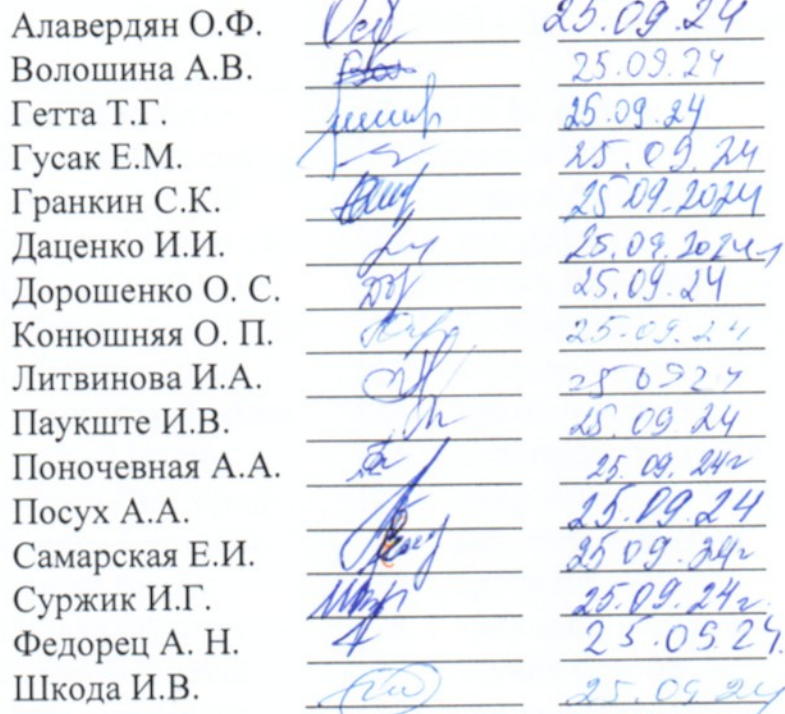 Алавердян О.Ф. 25.09.24
Волошина А.В. 25.09.24
Гетта Т.Г. 25.09.24
Гусак Е.М. 25.09.24
Гранкин С.К. 25 09.2024
Даценко И.И. 25.09.2024г
Дорошенко О. С. 25.09.24
Конюшняя О. П. 25.09.24
Литвинова И.А. 25 09 24
Паукште И.В. 25.09.24
Поночевная А.А. 25.09.24г
Посух А.А. 25.09.24
Самарская Е.И. 25 09.24г
Суржик И.Г. 25.09.24г.
Федорец А. Н. 25.09.24.
Шкода И.В. 25.09 24